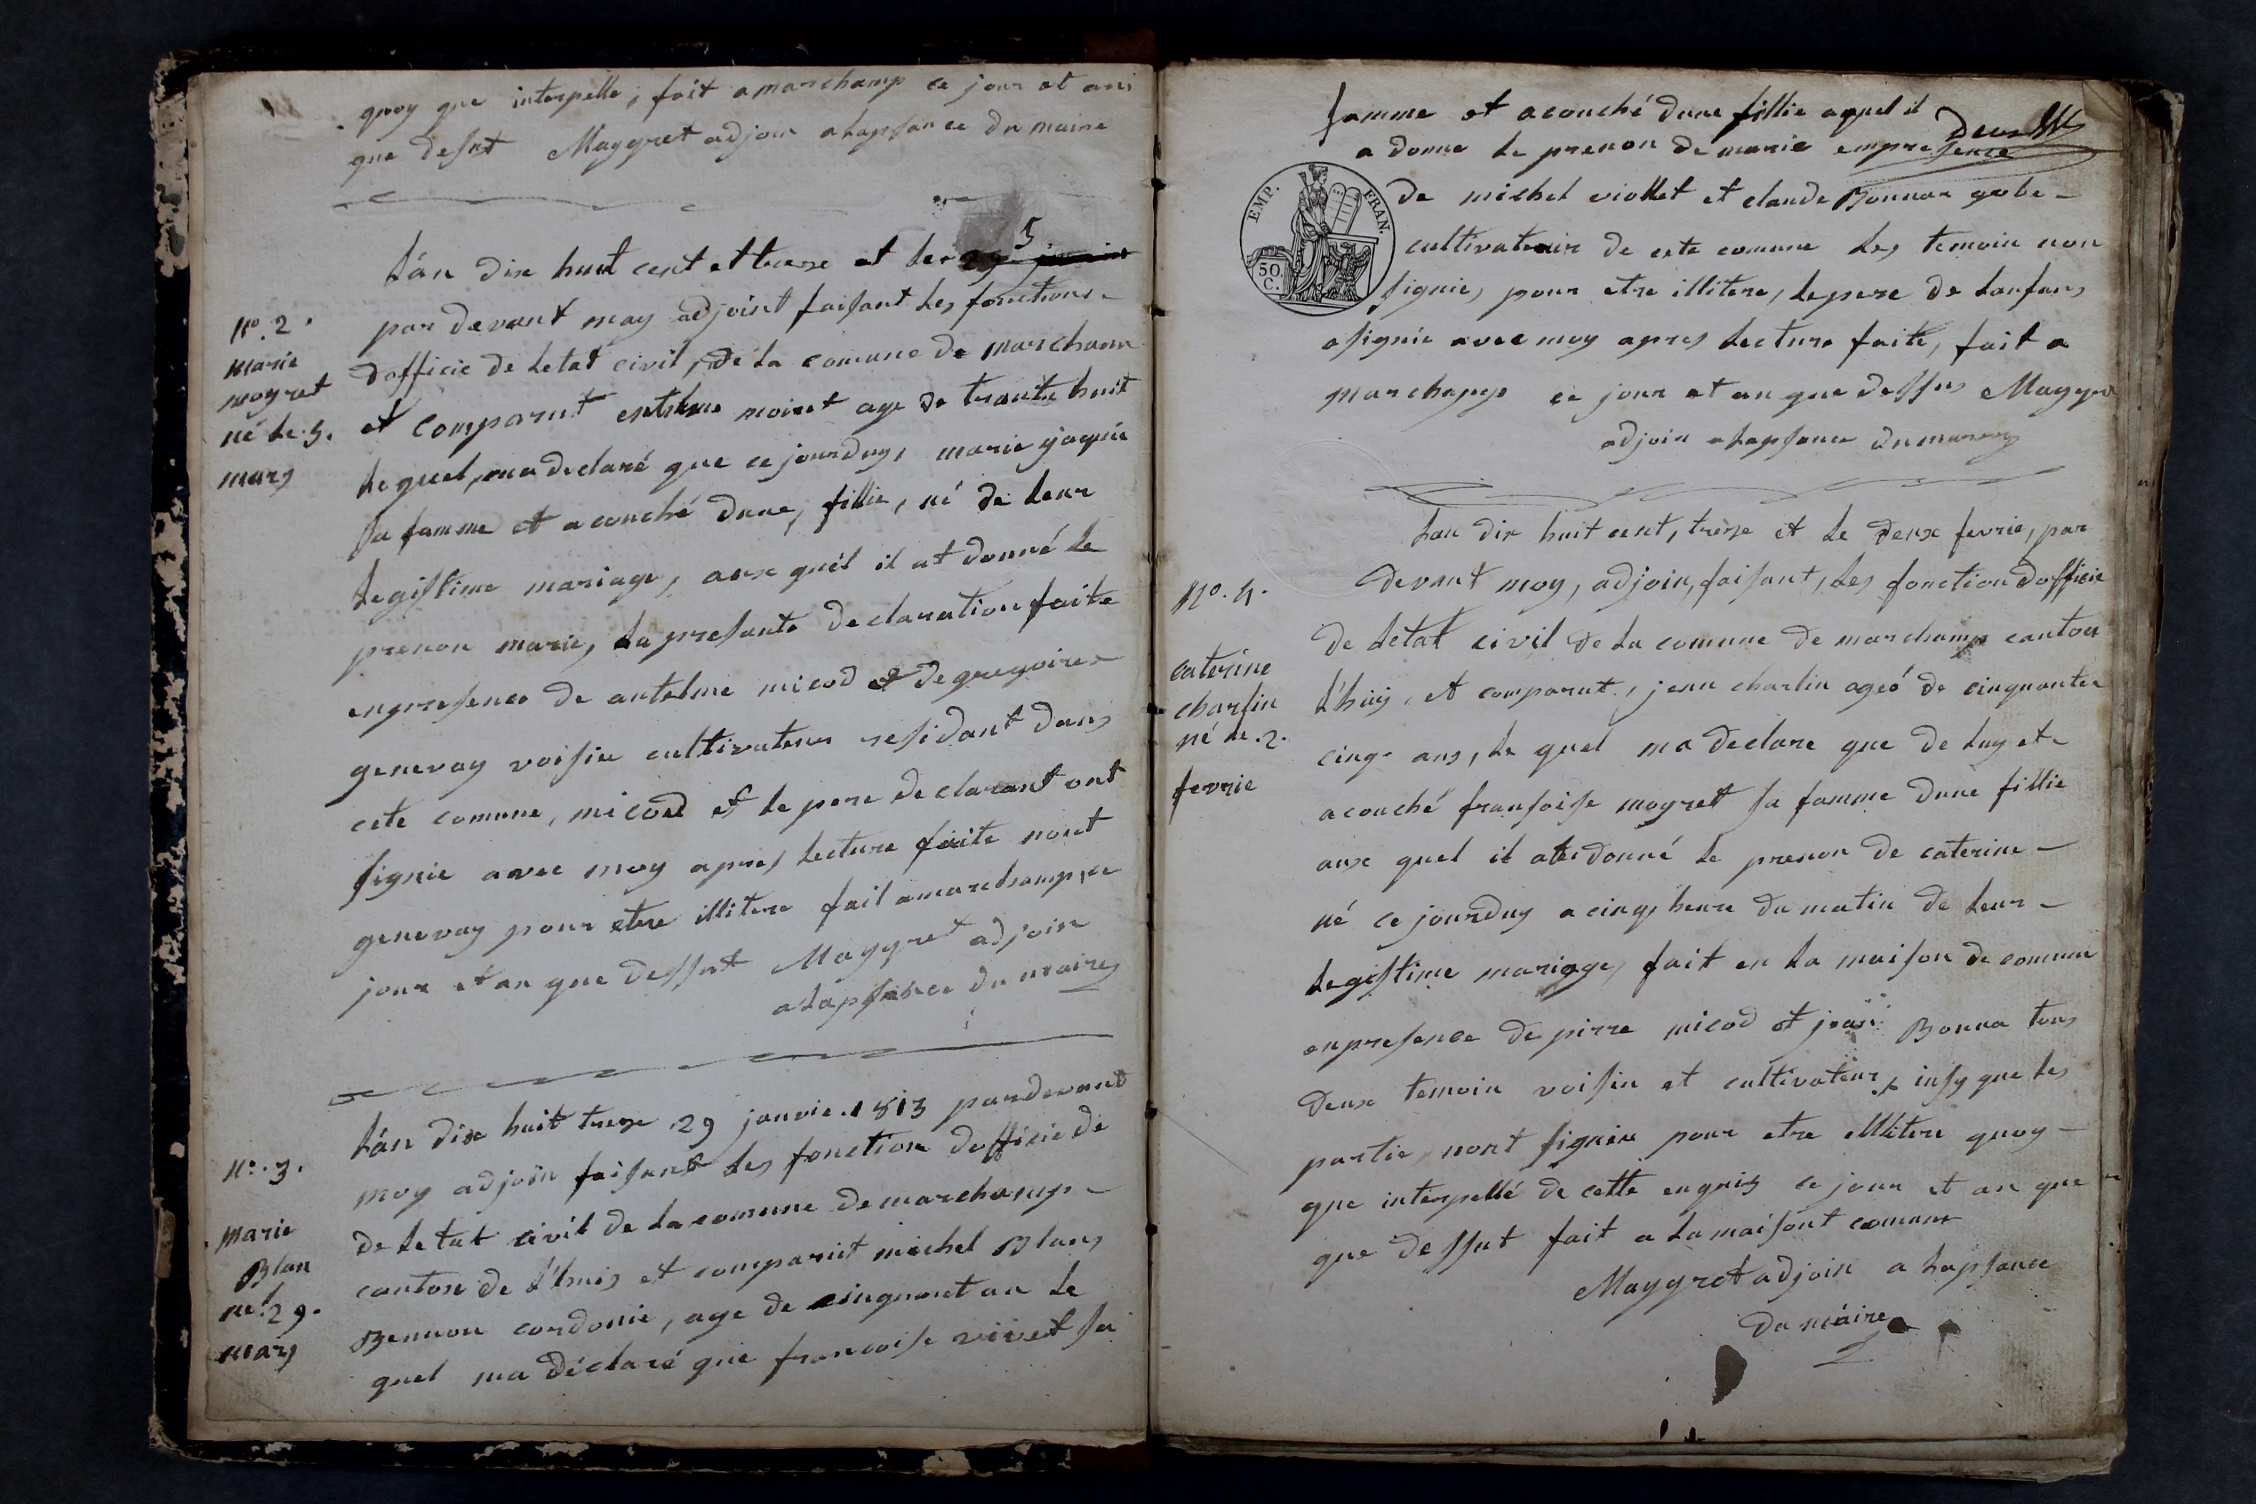 quoy que interpelle, fait a marchamp ce jour et ans
que desut Maygret adjoin a lapsance du maire
Lán dix huit cent et treze et le 29 5 janvier
par devant moy adjoint faisant les fonctions
dofficie de letat civil, de la comune de marchamp
et comparut entelme moiret age de trante huit
le quel, ma declaré que ce jourduy, marie
sa famme et acouché dune, fillie, né de leur
legistime mariage, aux quél il at donné le
prenon marie, la presante declaration faite
enpresence de antelme micod et de gregoire
genevay voisin cultivateur residant dans
cete comune, micod et le pere declarant ont
signie avec moy apres lecture faite nont
genevay pour etre illitere fait a marchamp, ce
jour et an que dessut Maygret adjoin
a lapsance du maire
No. 2.
marie
moyret
né le 5.
mars
Lán dix huit treze 29 janvie. 1813 pardevant
moy adjoin faisant les fonction dofficie de
de letat civil de la comune de marchamp
canton de l'huis et comparut michel Blanc
Bennon cordonie, age de cinquant an le
quel ma déclaré que francoise vivet sa
No. 3.
Marie
Blan
né 29.
mars
famme et acouché dune fillie aquel il
a donne le prenon de marie empresence
de michel viollet et claude Bonnar gobe
EMP. FRAN.
50 C.
cultivateur de cete comune les temoin non
signie, pour etre illitere, le pere de lanfans
a signie avec moy apres lecture faite, fait a
marchamp ce jour et an que dessus Maygret
adjoin a lapsance du maire
Lan dix huit cent, treze et le deux fevrie, par
devant moy, adjoin, faisant, les fonction dofficie
de letat civil de la comune de marchamp canton
l'huis, et comparut, jean charlin ageé de cinquante
cinq ans, le quel ma declare que de luy et
acouché fransoise moyret sa famme dune fillie
aux quel il at donné le prenon de caterine
né ce jourduy a cinq heure du matin de leur
legistime mariage, fait en la maison de comune
enpresence de pirre micod et jean Bonna tous
deux temoin voisin et cultivateur, insy que les
partie nont signiée pour etre illitere quoy
que interpellé de cette enquis ce jour et an que
que dessut fait a la maisont comune
Maygret adjoin a lapsance
du maire
No. 4.
caterine
charlin
né le 2.
fevrie